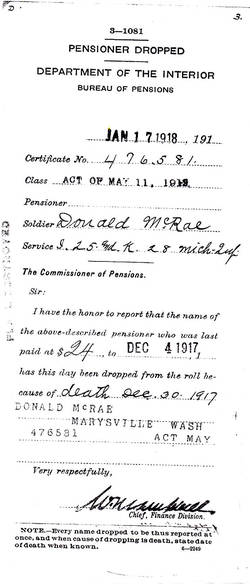 3.
3—1081
PENSIONER DROPPED
DEPARTMENT OF THE INTERIOR
BUREAU OF PENSIONS
JAN 17 1918, 191
Certificate No. 476581.
Class ACT OF MAY 11, 1912.
Pensioner
Soldier Donald McRae
Service I. 25 K 28 Mich Inf
The Commissioner of Pensions.
Sir:
I have the honor to report that the name of
the above-described pensioner who was last
paid at $24, to DEC 4 1917,
has this day been dropped from the roll be-
cause of death Dec. 30. 1917
DONALD MCRAE
MARYSVILLE WASH
476581 ACT MAY
Very respectfully,
Chief, Finance Division.
NOTE.—Every name dropped to be thus reported at
once, and when cause of dropping is death, state date
of death when known.
6—2249